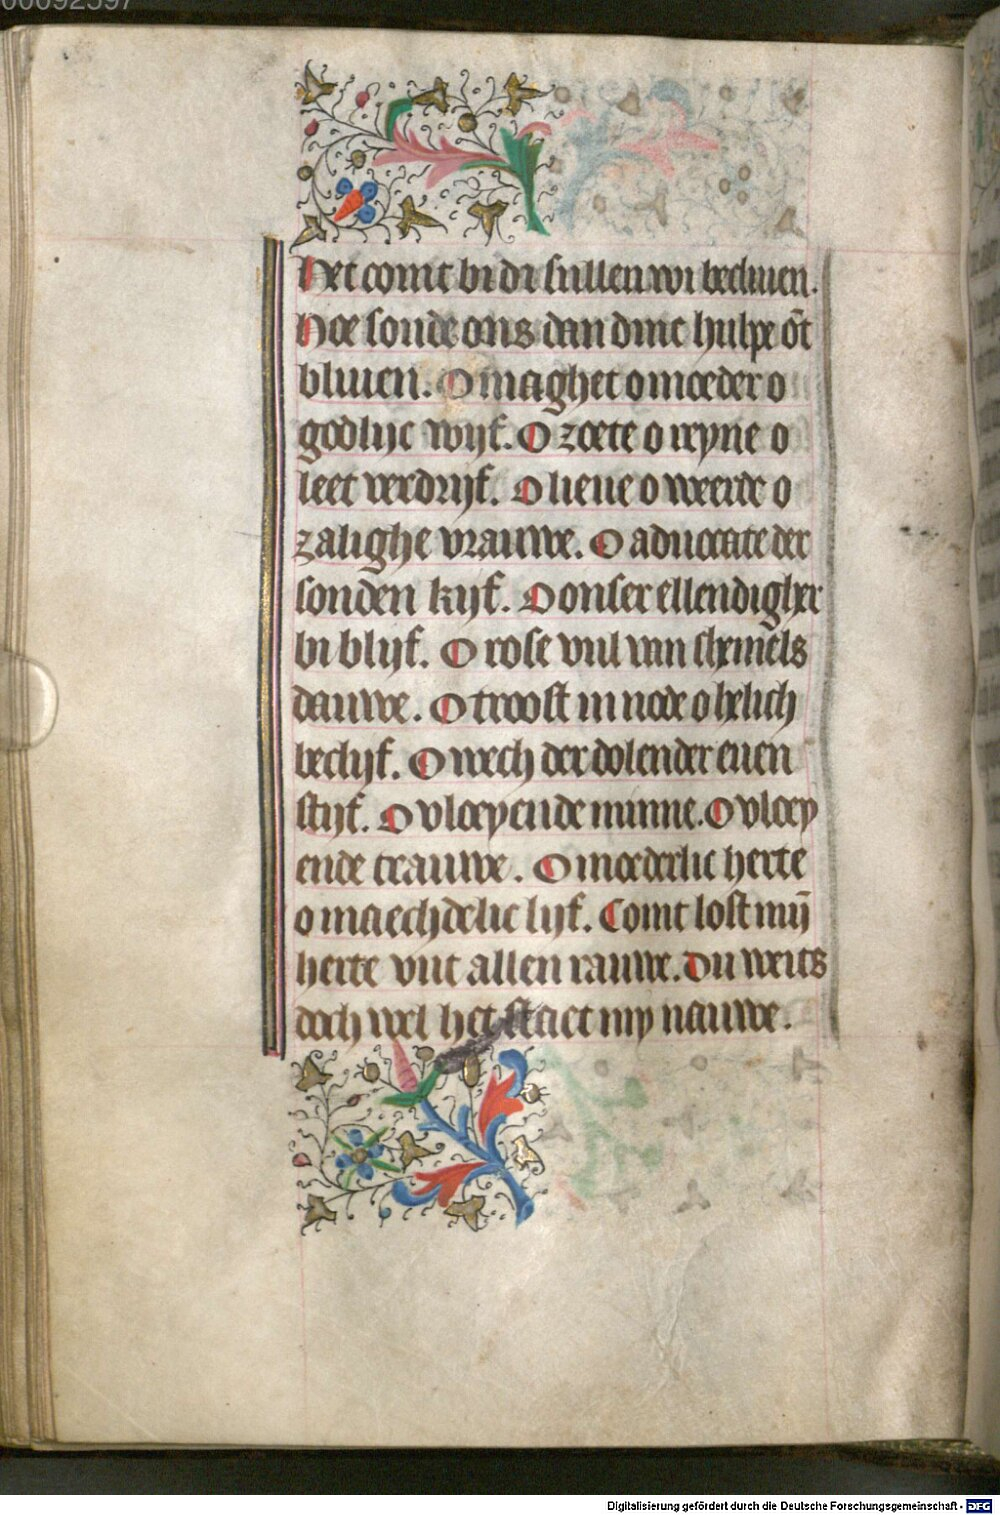 00092597
Het comt bi di sullen wi becliuen.
Hoe soude ons dan dinc hulpe ōt
bliuen. O maghet o moeder o
godlijc wijf. O zoete o reyne o
leet verdrijf. O lieue o weerde o
zalighe vrauwe. O aduocate der
sonden kijf. O onser ellendigher
bi blijf. O rose vul van shemels
dauwe. O troost in node o helich
beclijf. O wech der dolender euen
stijf. O vloeyende minne. O vloey
ende trauwe. O moederlic herte
o maechdelic lijf. Comt lost mij̄
herte vut allen rauwe. Du weits
doch wel het staet my nauwe.
Digitalisierung gefördert durch die Deutsche Forschungsgemeinschaft - DFG